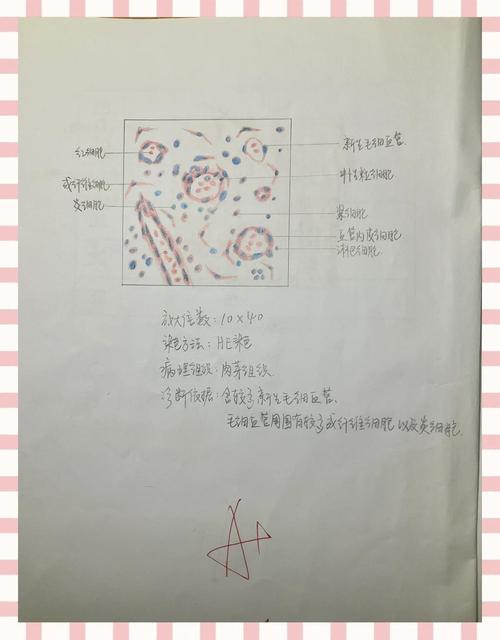 红细胞
成纤维细胞
炎细胞
新生毛细血管
中性粒细胞
浆细胞
血管内皮细胞
淋巴细胞
放大倍数：10×40
染色方法：HE染色
病理组织：肉芽组织
诊断依据：含较多新生毛细血管、
毛细血管周围有较多成纤维细胞以及炎细胞.
A+